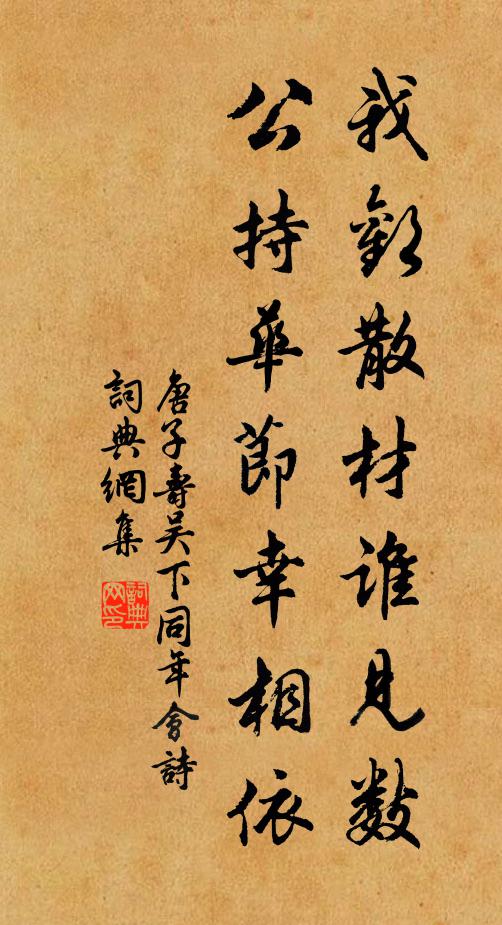 我散材誰見數
公持華節幸相依
唐子壽吴下同年會詩
詞典網集
詞典
网印